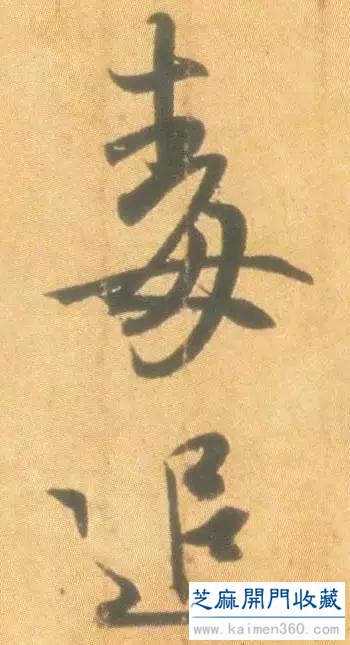 毒
追
芝麻開門收藏
www.kaimen360.com